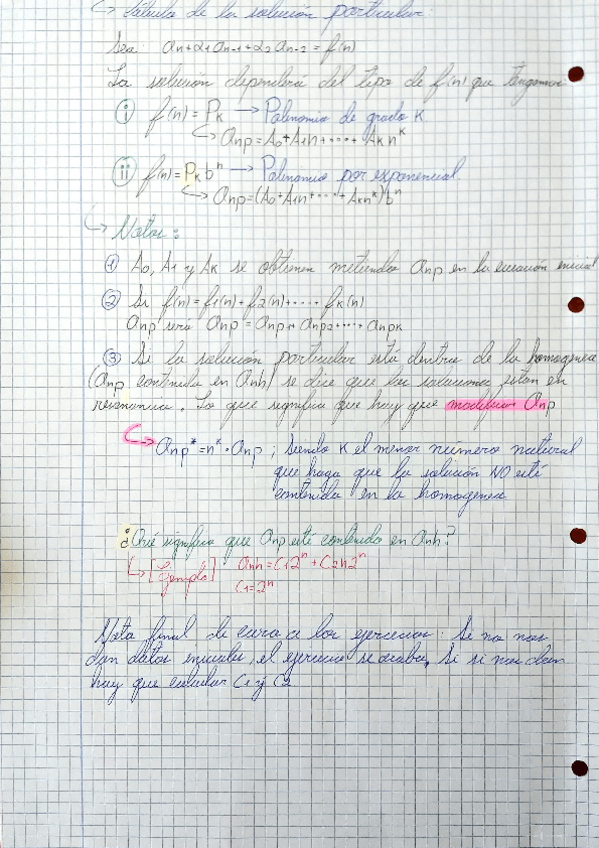 ↳ Cálculo de la solución particular:
Sea: an+α1an-1+α2an-2 = f(n)
La solución dependerá del tipo de f(n) que tengamos
(i) f(n) = Pk → Polinomio de grado K
↳ anp = A0+A1n+·····+Akn^k
(ii) f(n) = Pk b^n → Polinomio por exponencial.
↳ anp=(A0+A1n+····+Akn^k)b^n
↳ Notas:
① A0, A1 y Ak se obtienen metiendo anp en la ecuación inicial
② Si f(n) = f1(n)+f2(n)+···· fk(n)
anp será anp = anp1+anp2+····+anpk
③ Si la solución particular está dentro de la homogenea
(anp contenida en anh) se dice que las soluciones están en
resonancia. Lo que significa que hay que modificar anp
↳ anp* = n^k · anp ; siendo K el menor número natural
que haga que la solución NO esté
contenida en la homogenea
¿Qué significa que anp esté contenido en anh?
↳ [Ejemplo] anh = C1 2^n + C2 n 2^n
C1=2^n
Nota final de cara a los ejercicios: Si no nos
dan datos iniciales, el ejercicio se acaba, Si si nos dan
hay que calcular C1 y C2